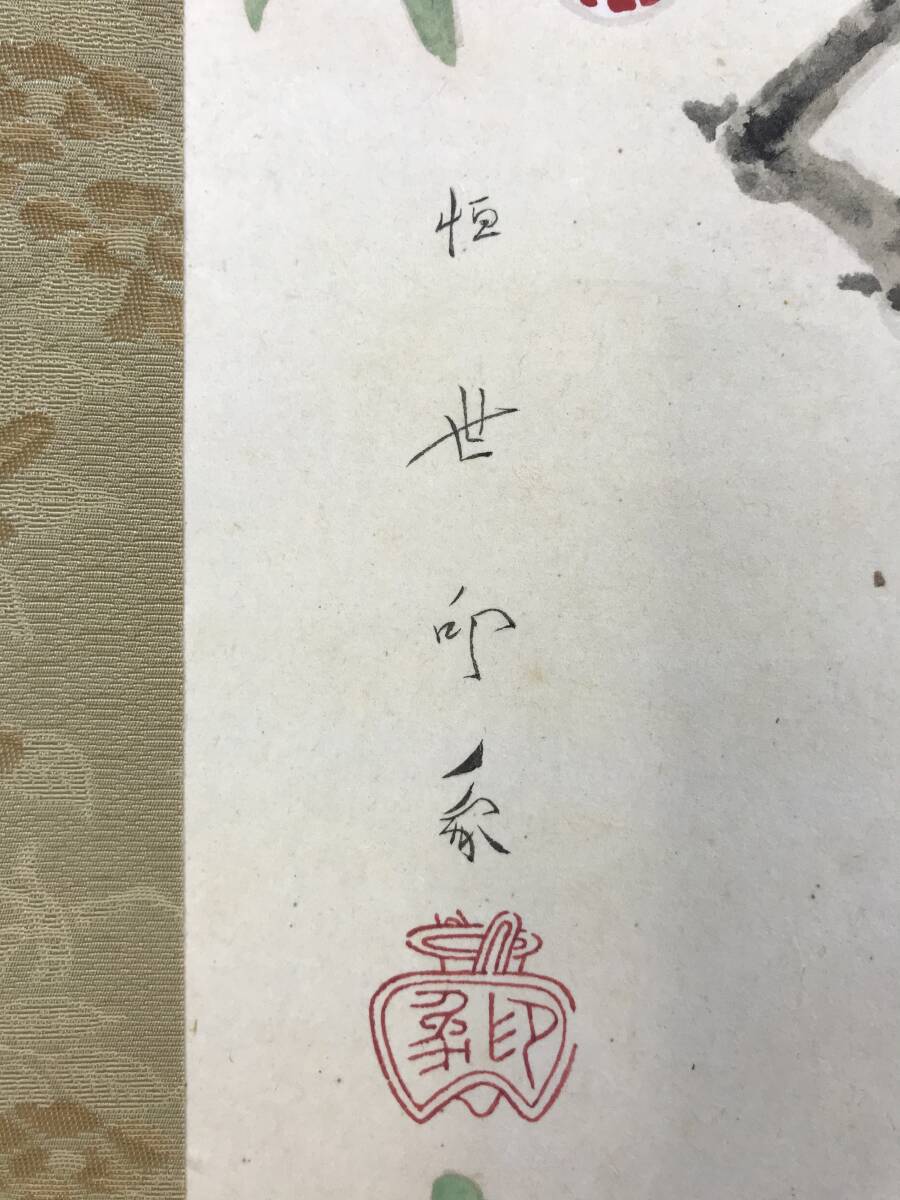 恒世印象
印象